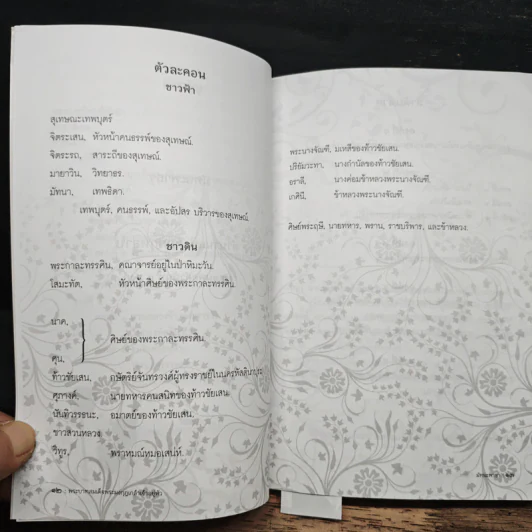 ตัวละคอน
ชาวฟ้า
สุเทษณะเทพบุตร์
จิตระเสน, หัวหน้าคนธรรพ์ของสุเทษณ์.
จิตระรถ, สาระถีของสุเทษณ์.
มายาวิน, วิทยาธร.
มัทนา, เทพธิดา.
เทพบุตร์, คนธรรพ์, และอัปสร บริวารของสุเทษณ์.
ชาวดิน
พระกาละทรรศิน, คณาจารย์อยู่ในป่าหิมะวัน.
โสมะทัต, หัวหน้าศิษย์ของพระกาละทรรศิน
นาค,
ศิษย์ของพระกาละทรรศิน
ศุน,
ท้าวชัยเสน, กษัตริย์จันทรวงศ์ผู้ทรงราชย์ในนครหัสตินาปุระ
ศุภางค์, นายทหารคนสนิทของท้าวชัยเสน.
นันทิวรรธนะ, อมาตย์ของท้าวชัยเสน.
ชาวสวนหลวง.
วิทูร, พราหมณ์หมอเสน่ห์.
๑๒ : พระบาทสมเด็จพระมงกุฎเกล้าเจ้าอยู่หัว
พระนางจัณฑี, มเหสีของท้าวชัยเสน.
ปริยัมวะทา, นางกำนัลของท้าวชัยเสน.
อราลี, นางค่อมข้าหลวงพระนางจัณฑี.
เกศินี, ข้าหลวงพระนางจัณฑี.
ศิษย์พระฤษี, นายทหาร, พราน, ราชบริพาร, และข้าหลวง.